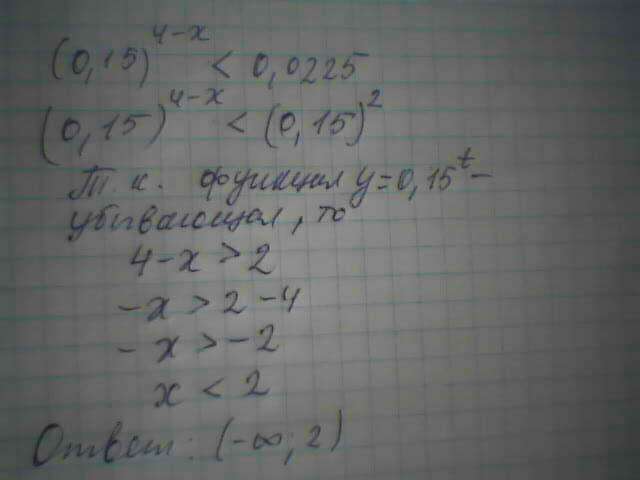 (0,15)^{4-x} < 0,0225
(0,15)^{4-x} < (0,15)^2
Т.к. функция y=0,15^t –
убывающая, то
4-x > 2
-x > 2-4
-x > -2
x < 2
Ответ: (-∞; 2)